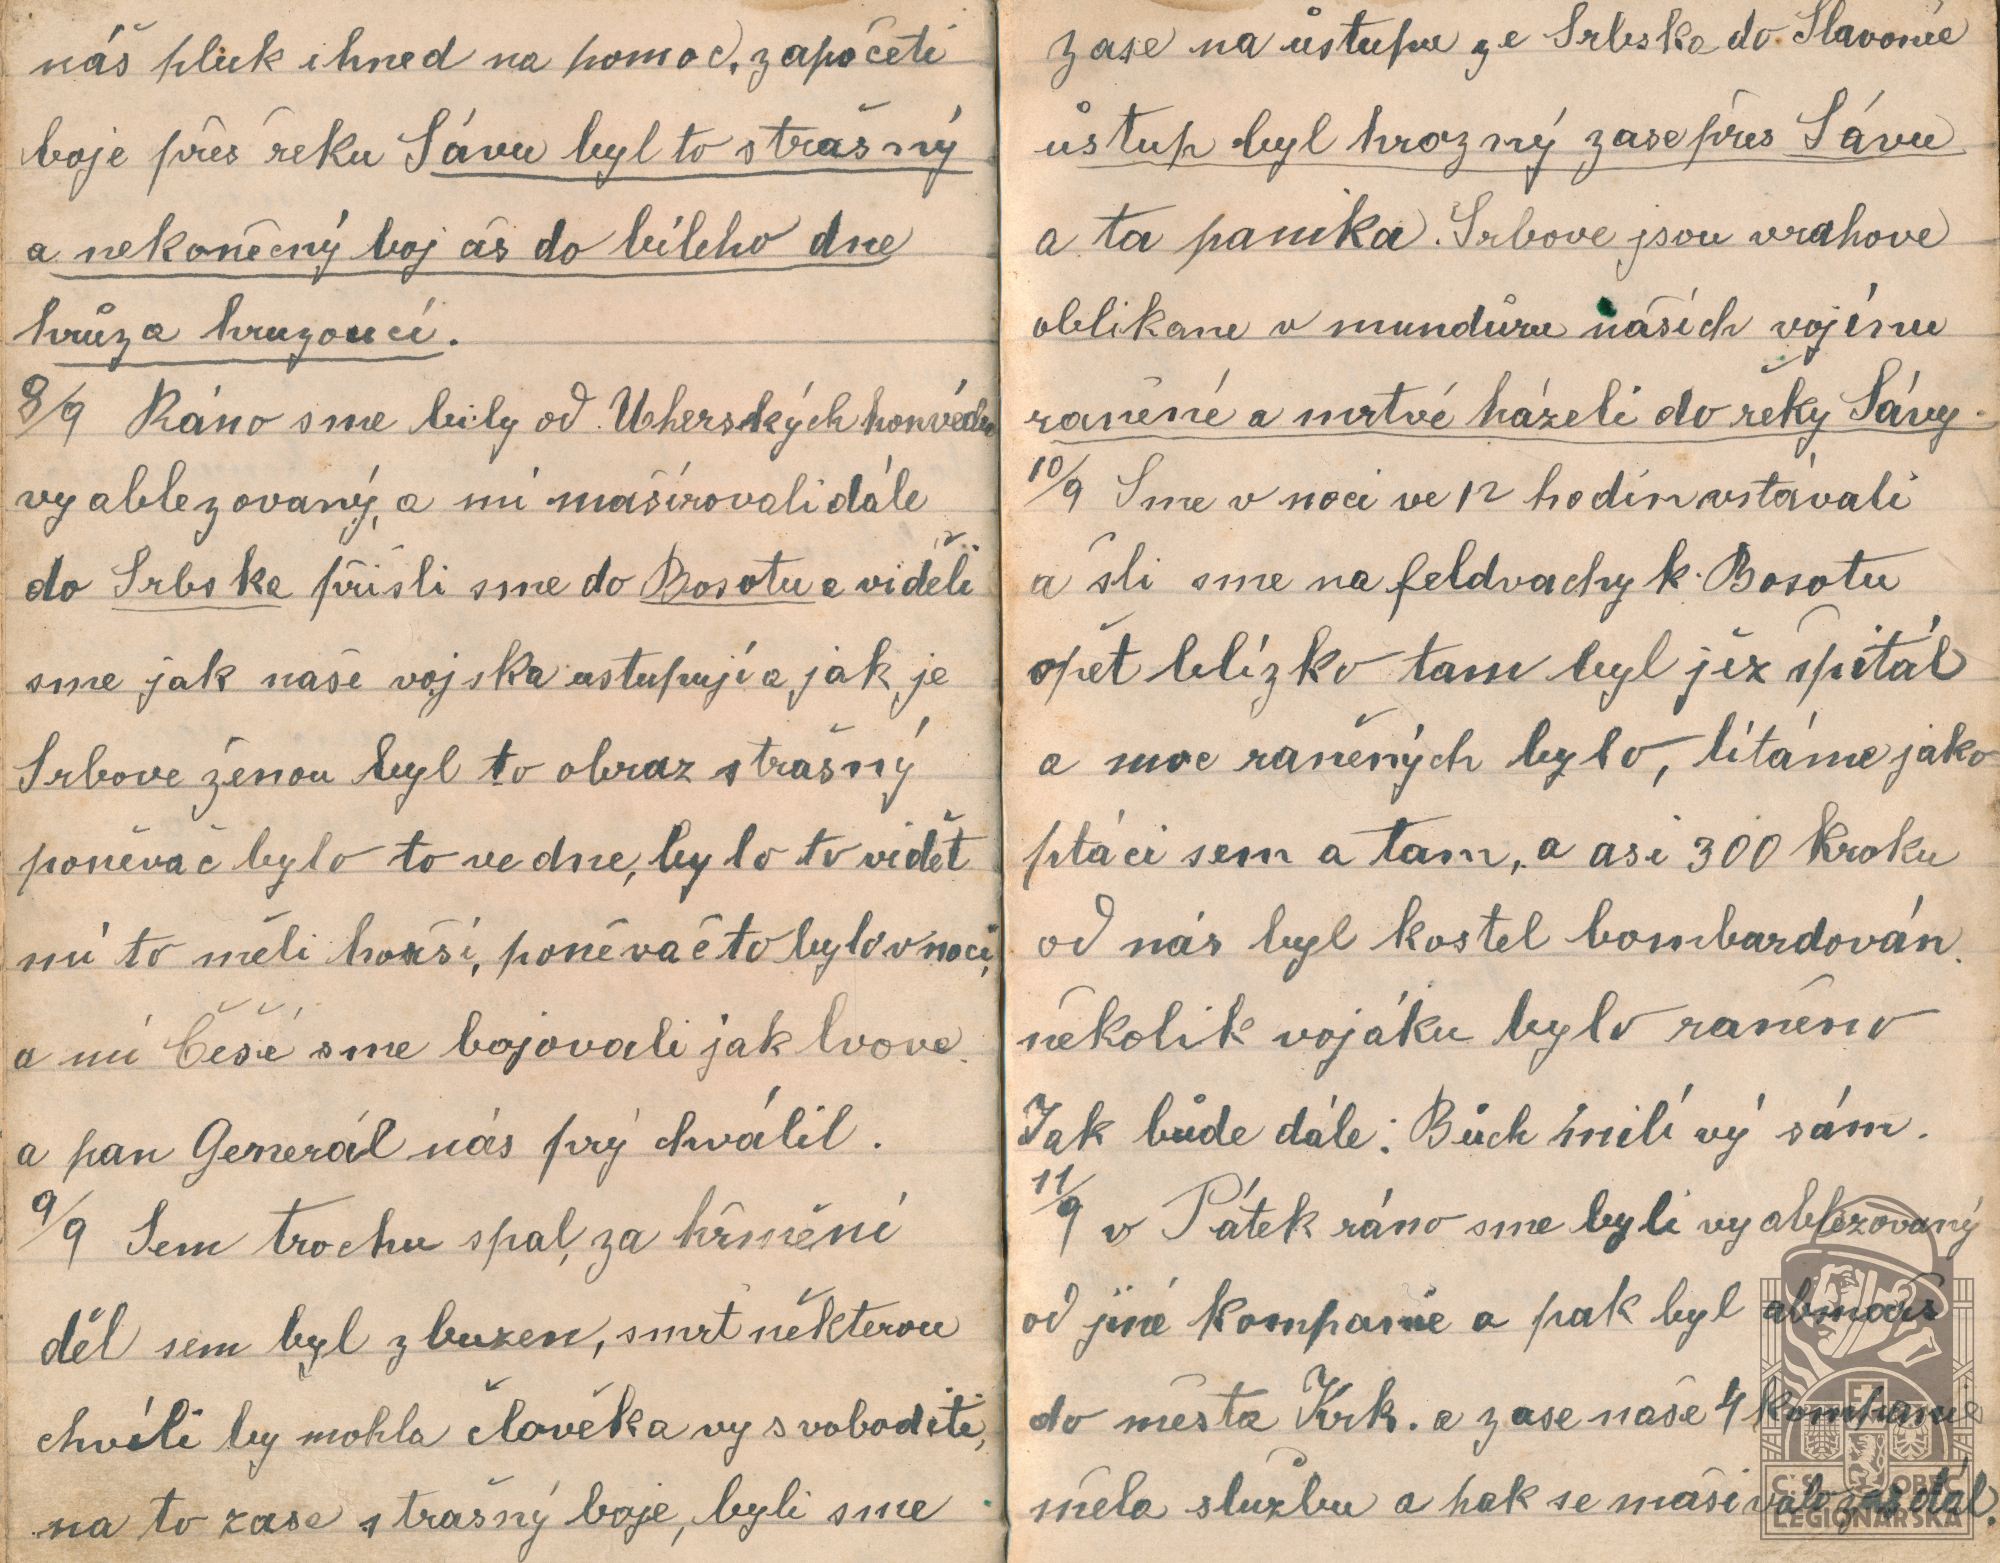 náš pluk ihned na pomoc, započeti
boje přes řeku Sávu byl to strašný
a nekonečný boj áš do bileho dne
hrůza hruzoucí.
8/9 Ráno sme bily od Uherských honvédu
vyablezovaný, a mi mašírovali dále
do Srbska přišli sme do Bosotu a viděli
sme jak naše vojska ustupují a jak je
Srbove ženou byl to obraz strašný
poněvač bylo to ve dne, bylo to vidět
mi to měli horší, poněvač to bylo v noci,
a mi Češé sme bojovali jak lvove.
a pan Generál nás prý chválil.
9/9 Sem trochu spal, za hřmění
děl sem byl zbuzen, smrt některou
chvíli by mohla člověka vysvobodíti,
na to zase strašný boje, byli sme
zase na ůstupu ze Srbska do Slavonie
ůstup byl hrozný zase přes Sávu
a ta panika. Srbove jsou vrahove
oblikane v mundůru našich vojínu
raněné a mrtvé házeli do řeky Sávy.
10/9 Sme v noci ve 12 hodin vstávali
a šli sme na feldvachy k Bosotu
opět blízko tam byl již špitál
a moc raněných bylo, lítáme jako
ptáci sem a tam, a asi 300 kroku
od nás byl kostel bombardován.
několik vojáku bylo raněno
Jak bůde dále: Bůch milí vý sám.
11/9 v Pátek ráno sme byli vyablezovaný
od jiné kompanie a pak byl abmarš
do města Krk. a zase naše 4 kompanie
měla službu a hak se maširvalo zas dál.
Č:S: OBEC
LEGIONÁŘSKÁ